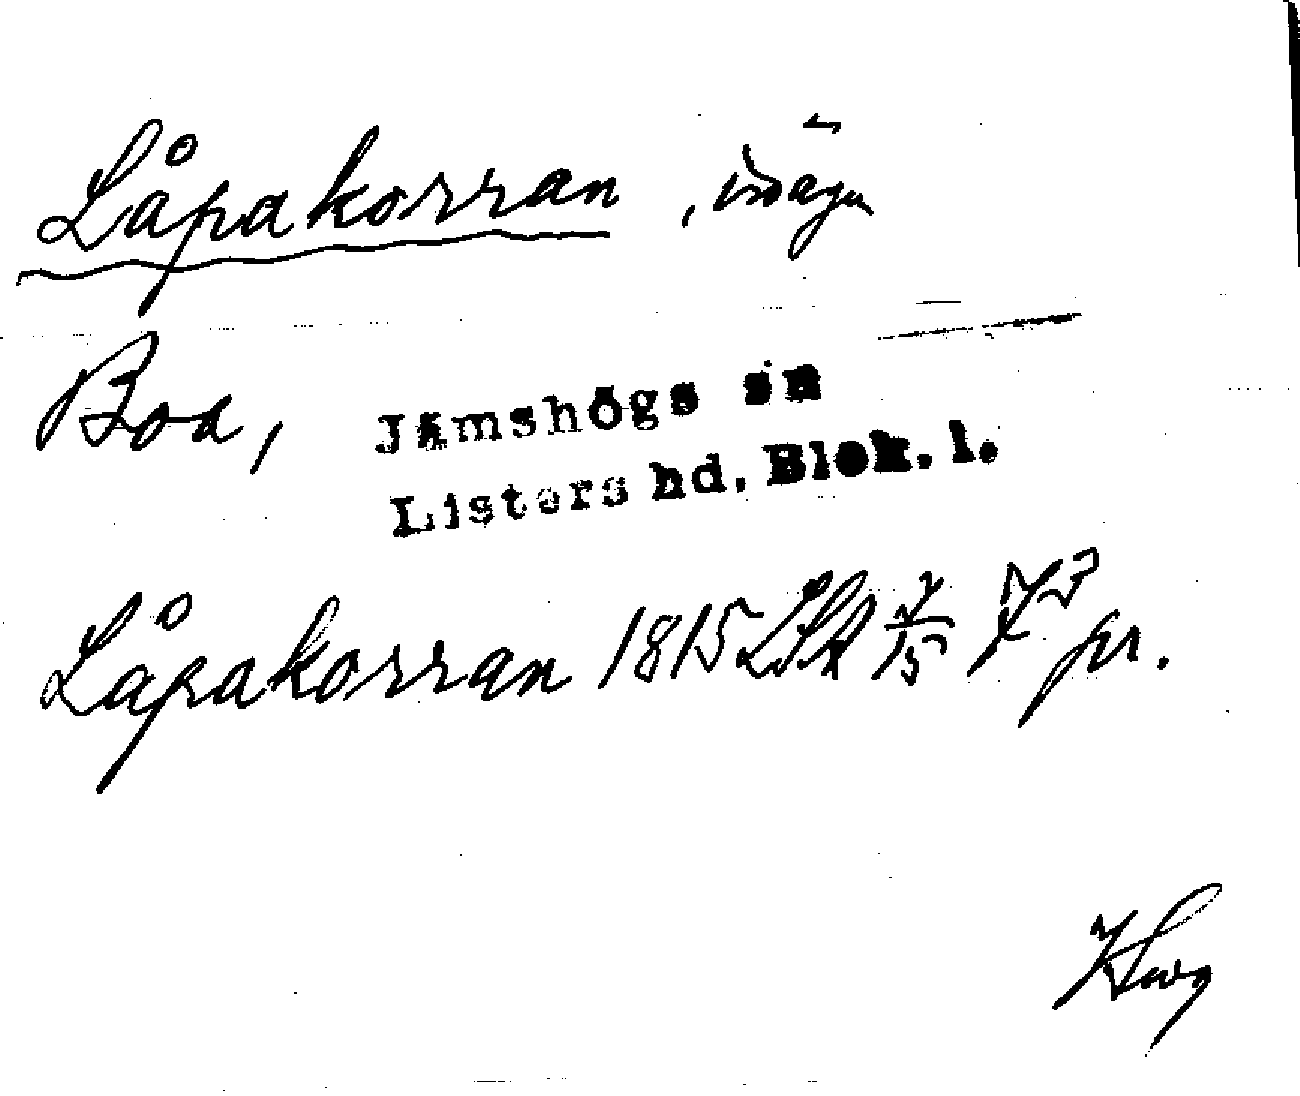 Låpakorran, inäga
Boa, Jämshögs sn
Listers hd. Blek. l.
Låpakorran 1815 LSA 7/15 pr.